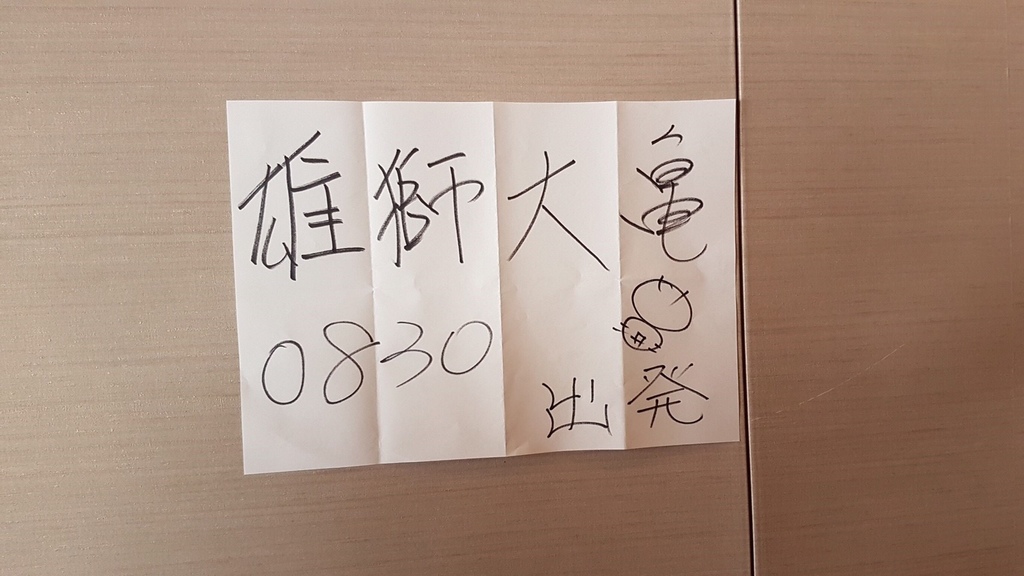 雄獅大亀
0830
出発